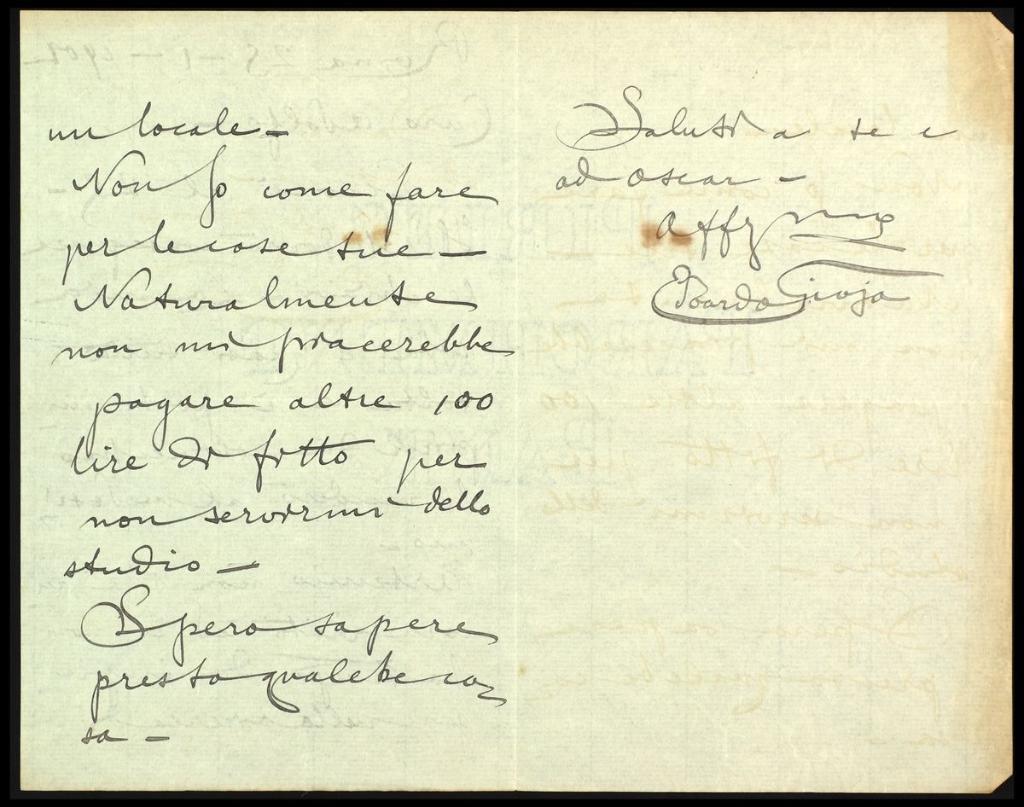 un locale –
Non so come fare
per le cose tue –
Naturalmente
non mi piacerebbe
pagare altre 100
lire di fitto per
non servirmi dello
studio –
Spero sapere
presto qualche co=
sa –
Saluti a te e
ad Oscar –
Aff mo
Edoardo Gioja
Roma 28 – 1 – 1902